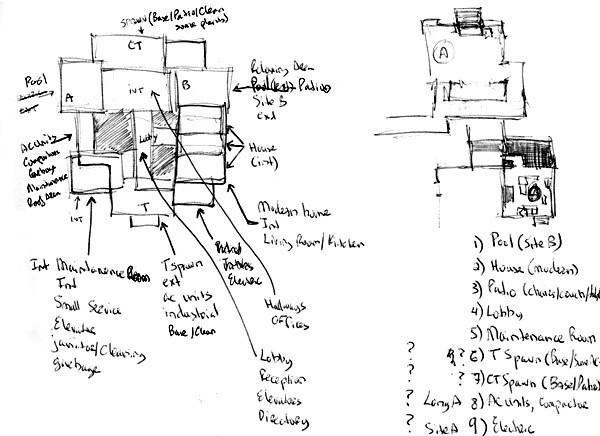 Spawn (Base/Patio/Clean
some plants)
CT
Pool
A
INT
B
Patio
Site B
Ext
Lobby
House
(int)
AC Units
Compactor
Garbage
Maintenance
INT
T
Modern home
Int
Living Room/Kitchen
Int Maintenance Room
Int
Small Service
Elevator
janitor/Cleaning
garbage
T Spawn
ext
ac units
industrial
Base/Clean
Electric
Hallways
OFFices
Lobby
Reception
Elevators
Directory
A
A
1) Pool (Site B)
2) House (modern)
3) Patio
4) Lobby
5) Maintenance Room
? ? 6) T Spawn (Base/
? ? 7) CT Spawn (Base/Patio
? Long A 8) AC Units, Compactor
? Site A 9) Electric